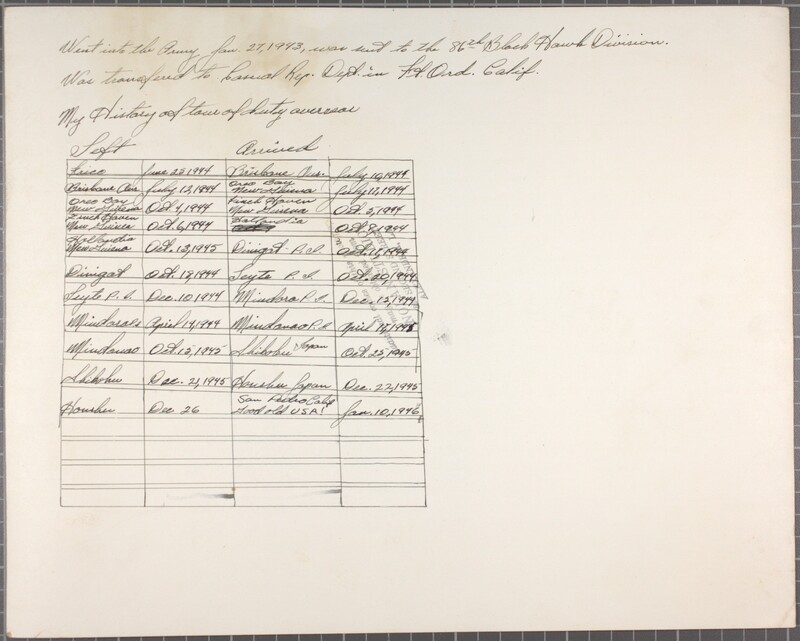 Went into the Army Jan. 27, 1943, was sent to the 86th Black Hawk Division.
Was transfered to Casual Rep. Dept. in Ft. Ord. Calif.
My History of tour of duty overseas
Left Arrived
Frisco June 25 1944 Brisbane Aus. July 10, 1944
Brisbane Aus July 12, 1944 Oro Bay New Guinea July 17, 1944
Oro Bay New Guinea Oct. 4, 1944 Finch Haven New Guinea Oct. 5, 1944
Finch Haven New Guinea Oct. 6, 1944 Hollandia Oct. 8, 1944
Hollandia New Guinea Oct. 13, 1945 Dinigat P.I. Oct. 1944
Dinigat Oct. 18, 1944 Leyte P.I. Oct. 20, 1944
Leyte P.I. Dec. 10, 1944 Mindora P.I. Dec. 15, 1944
Mindora April 14, 1944 Mindanao P.I. April
Mindanao Oct. 15, 1945 Shikoku Japan Oct. 25, 1945
Shikoku Dec. 21, 1945 Honshu Japan Dec. 22, 1945
Honshu Dec 26 San Pedro Calif Good old USA! Jan. 10, 1946